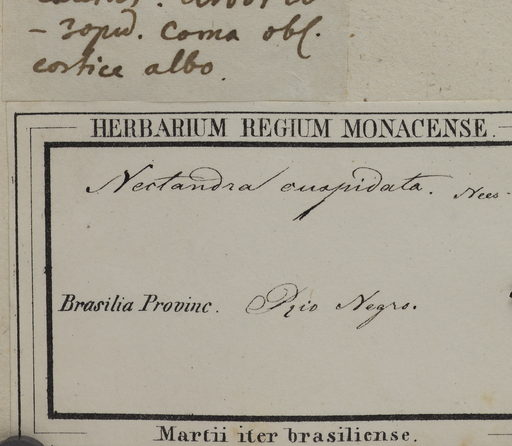 – 30 ped. Coma obl.
cortice albo.
HERBARIUM REGIUM MONACENSE.
Nectandra cuspidata. Nees
Brasilia Provinc. Rio Negro.
Martii iter brasiliense.